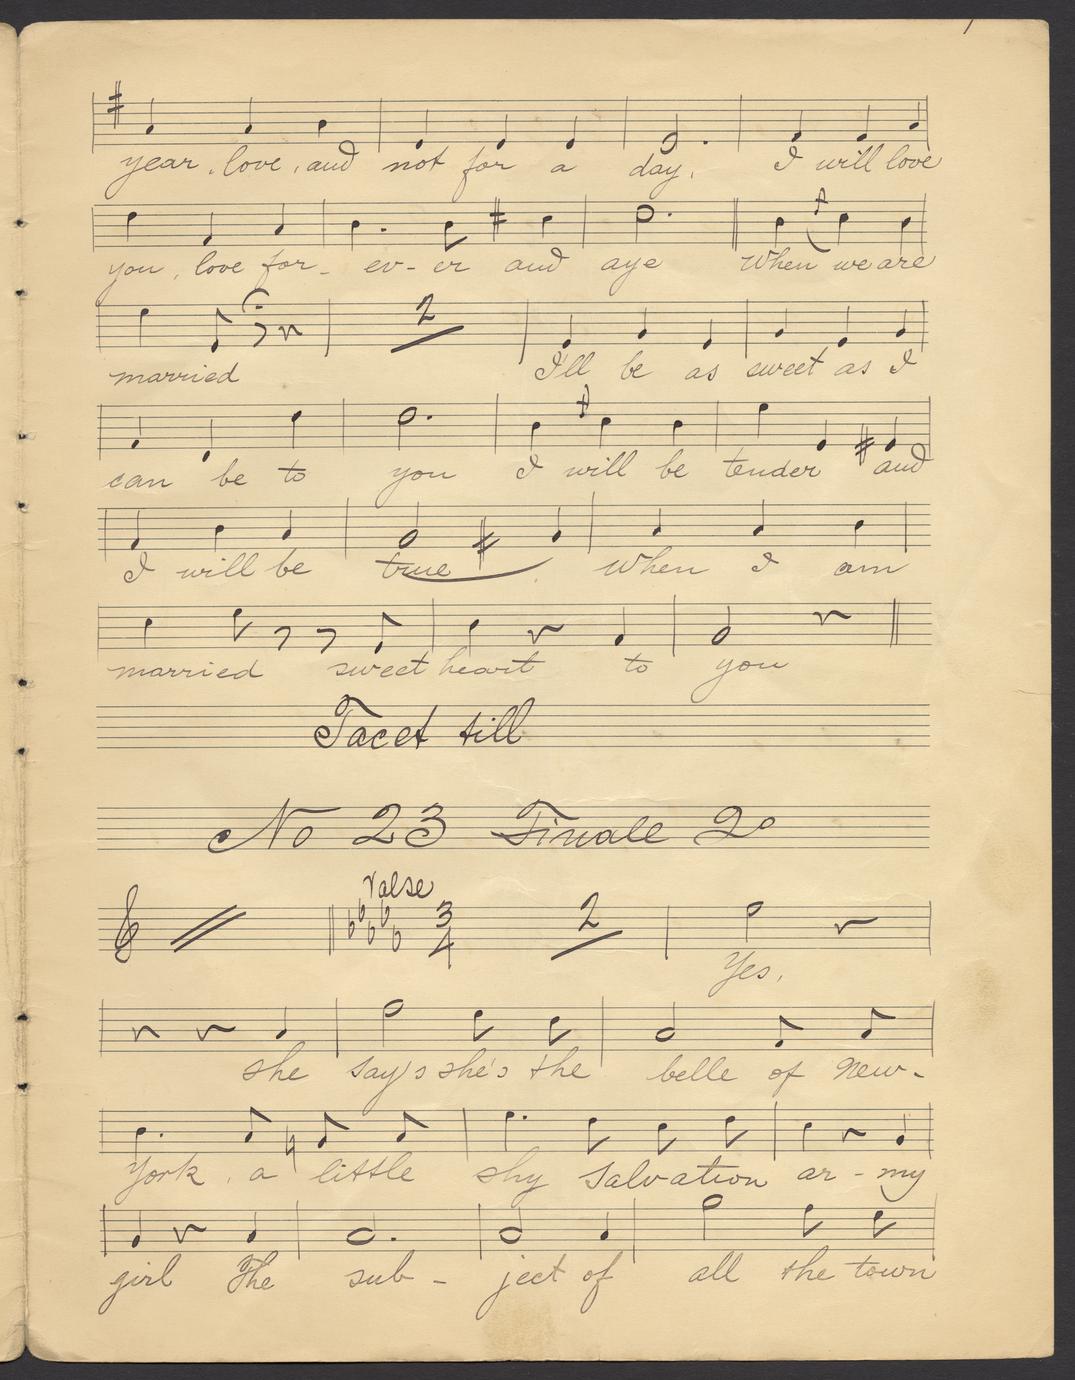 year, love, and not for a day, I will love
you, love for- ev- er and aye When we are
married 2 I'll be as sweet as I
can be to you I will be tender and
I will be true When I am
married sweet heart to you
Tacet till
No 23 Finale 2º
Valse
3/4 2 Yes,
she say's she's the belle of New-
York, a little shy Salvation ar-my
girl The sub- ject of all the town